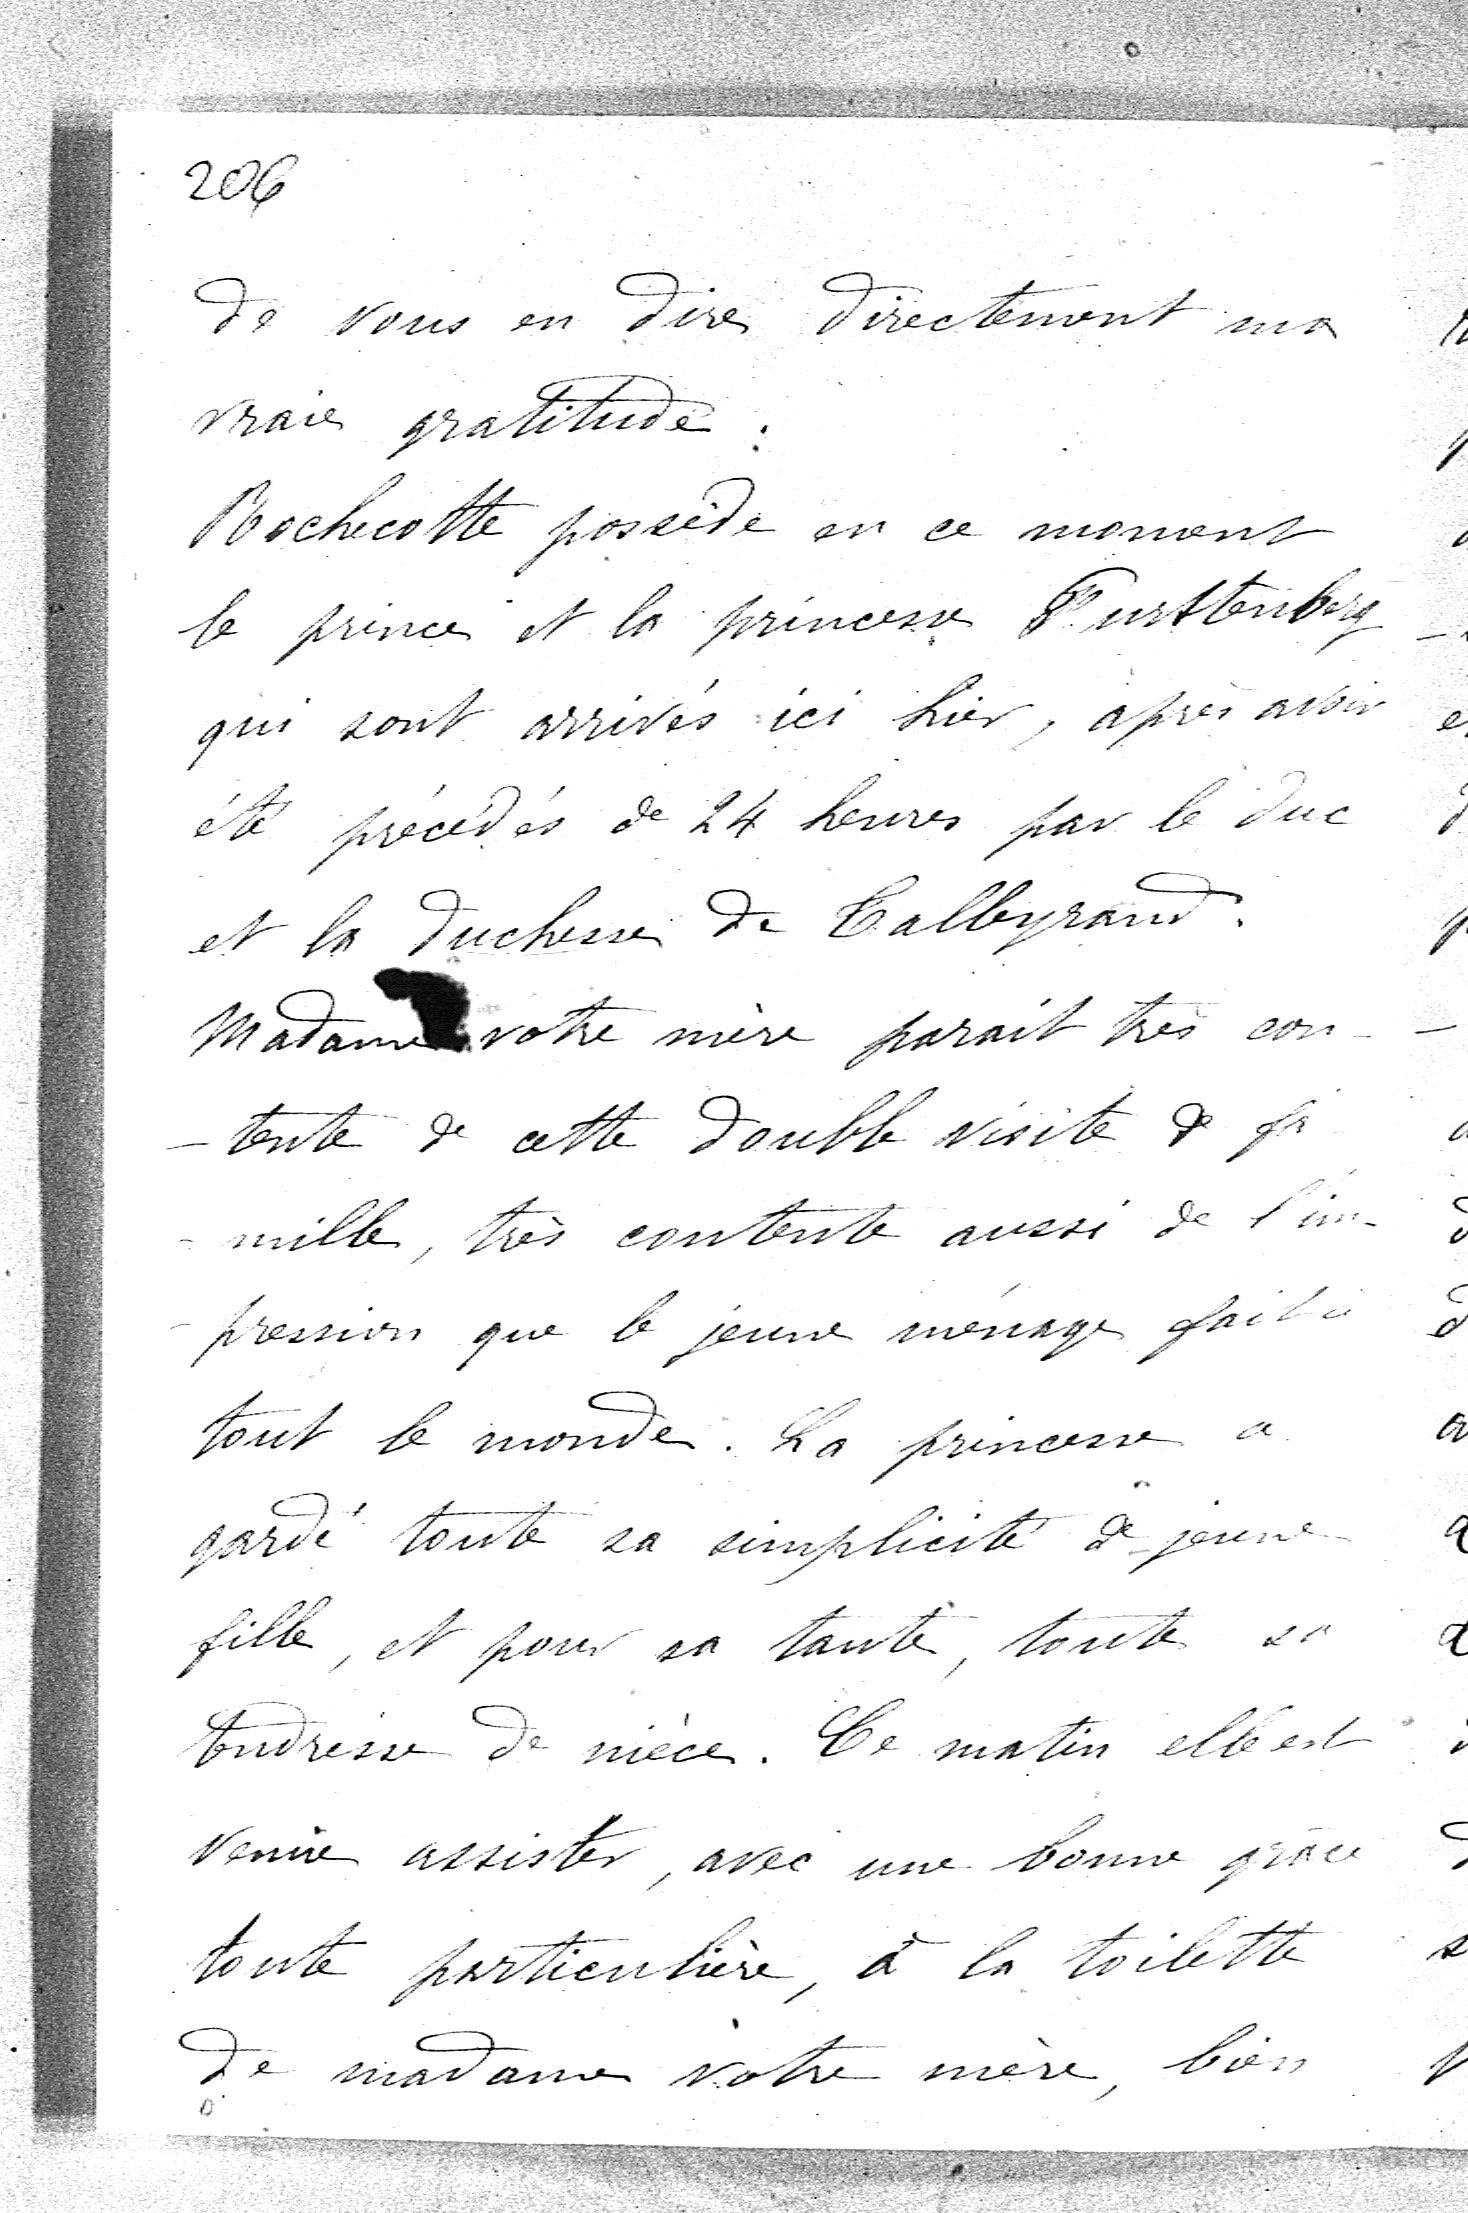 206
de vous en dire directement ma
vraie gratitude.
Rochecotte possède en ce moment
le prince et la princesse Furstenberg
qui sont arrivés ici hier, après avoir
été précédés de 24 heures par le duc
et la duchesse de Talleyrand.
Madame votre mère parait très con-
-tente de cette double visite de fa
-mille, très contente aussi de l'im-
-pression que le jeune ménage fait à
tout le monde. La princesse a
gardé toute sa simplicité de jeune
fille, et pour sa tante, toute sa
tendresse de nièce. Ce matin elle est
venue assister, avec une bonne grâce
toute particulière, à la toilette
de madame votre mère, bien